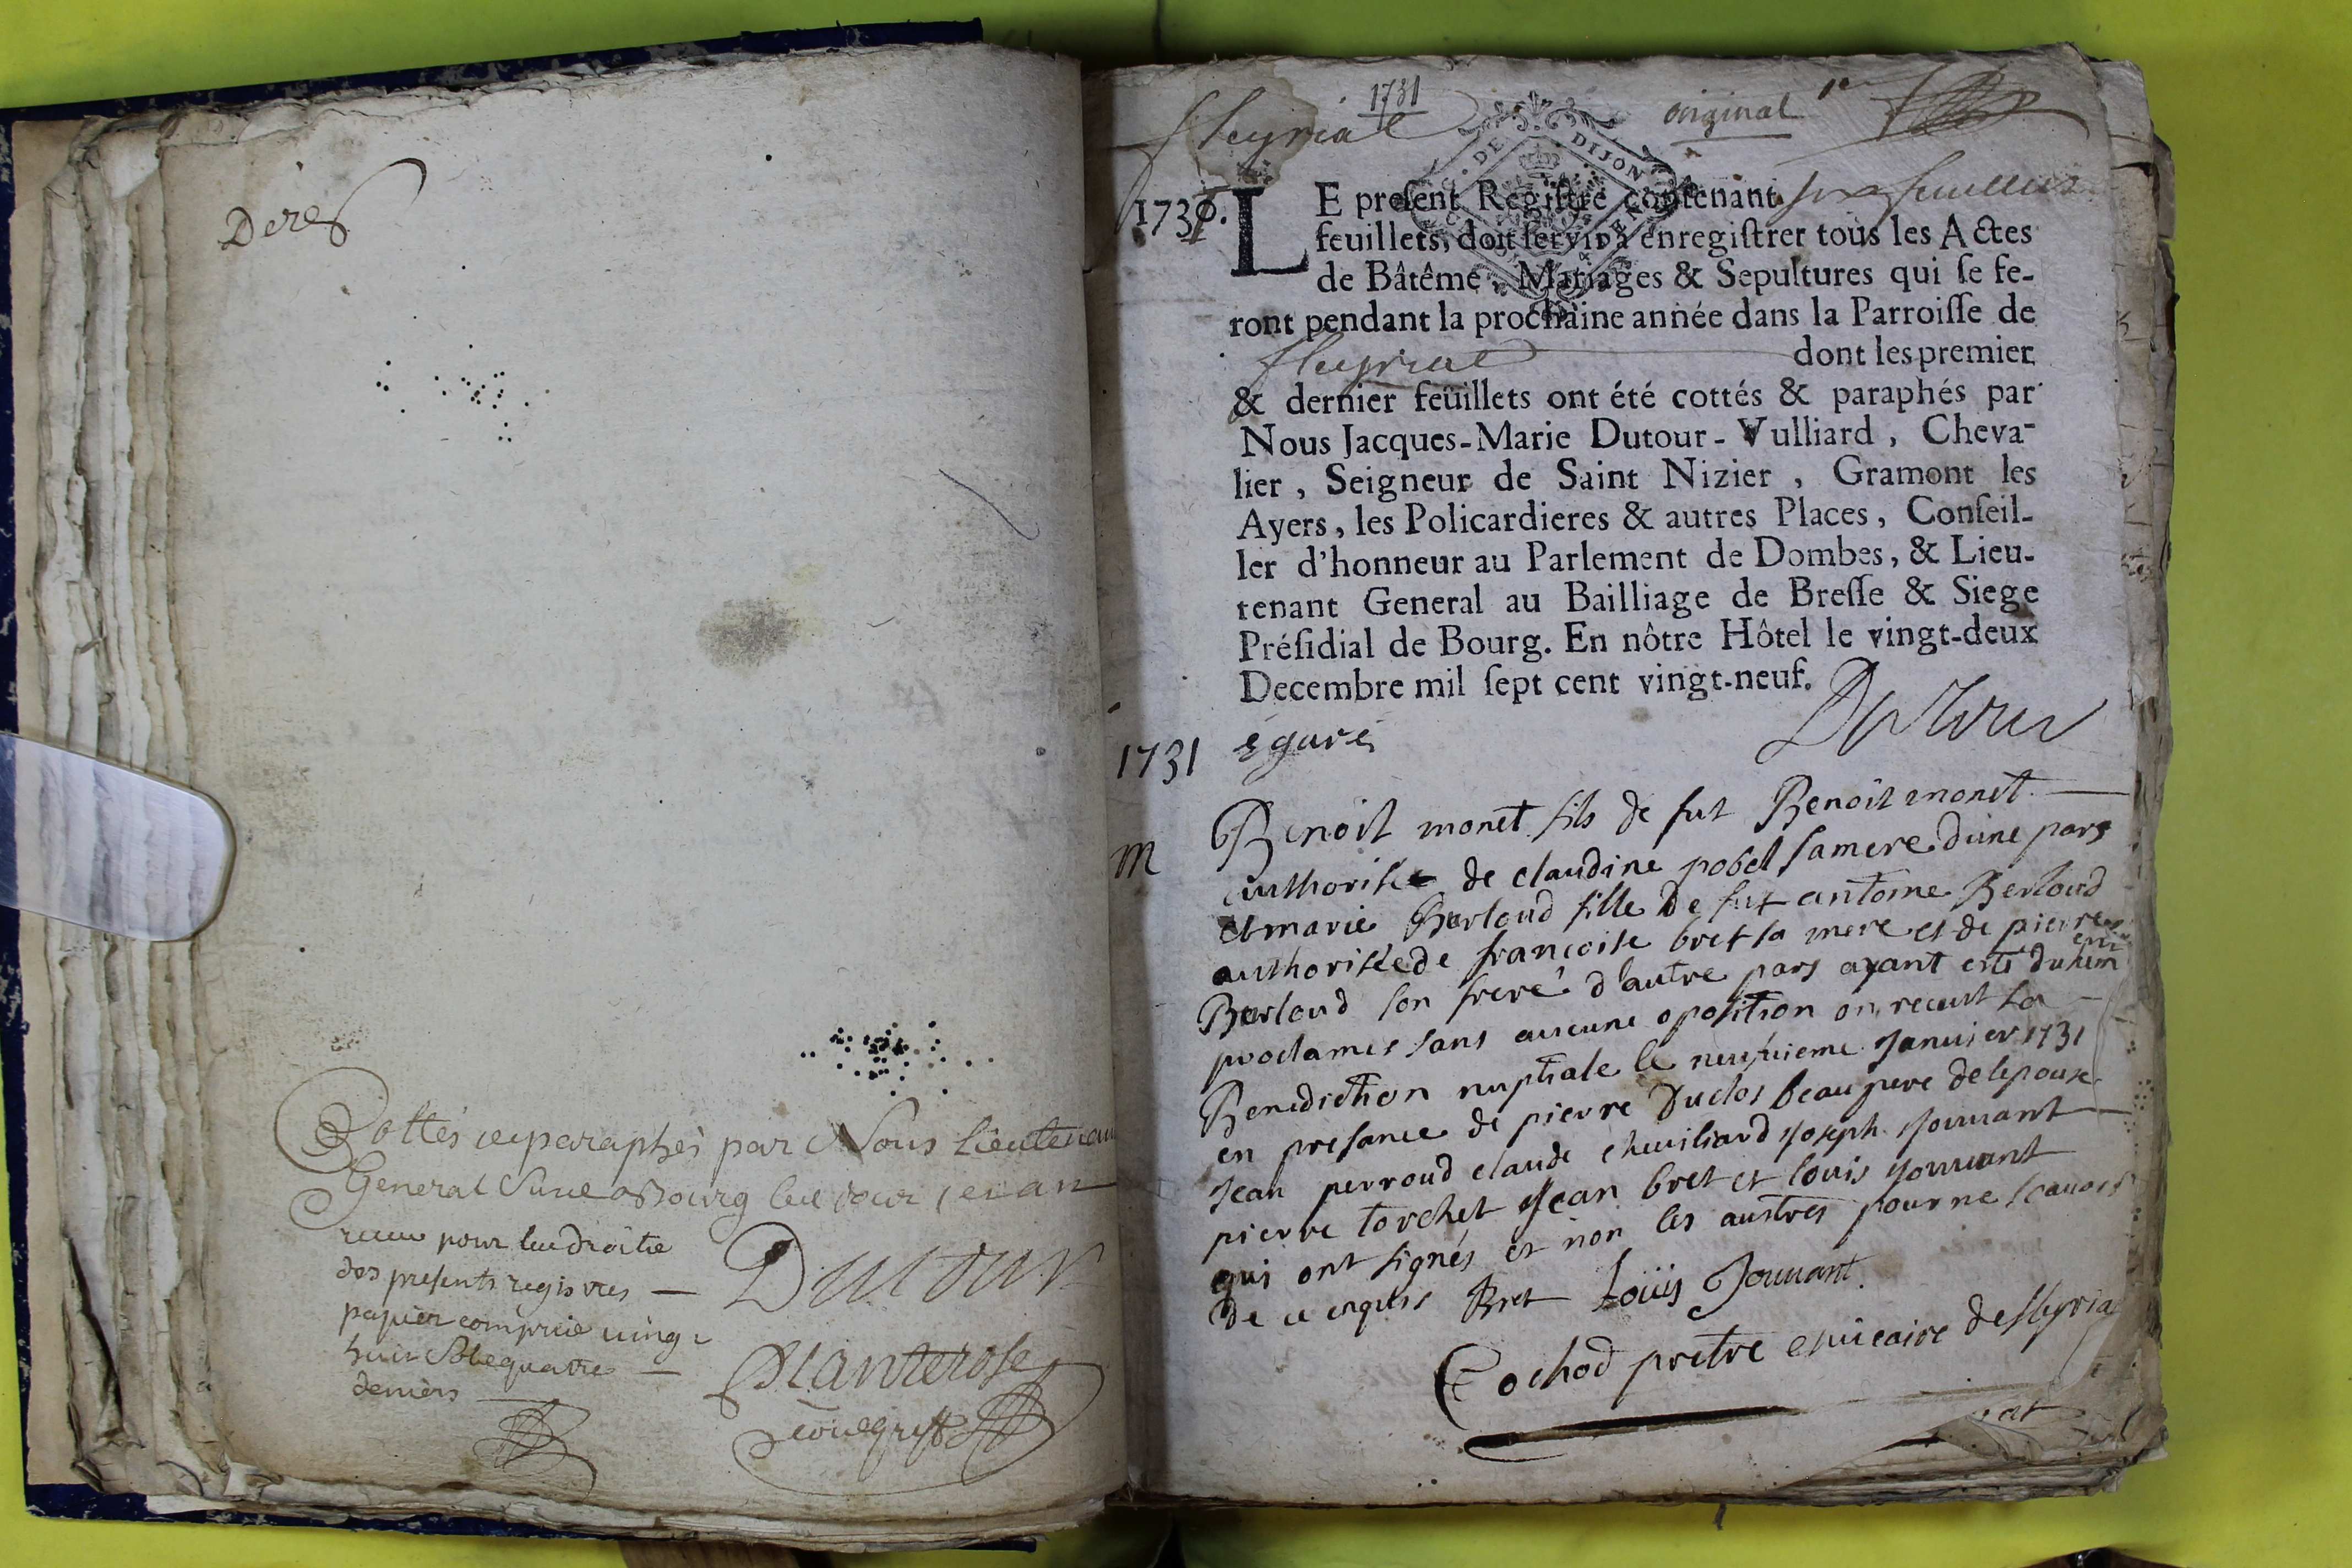 Der
Cottés et paraphés par Nous Lieutenant
General Bourg
pour les
des presents registres
papier comprie vingt
huit sols quatre
deniers
Dutour
Planterose
1731
original
fleyriat
C. G. DE DIJON
1730. LE present Registre contenant six feuillets
feuillets, doit servir à enregistrer tous les Actes
de Bâtême, Mariages & Sepultures qui se fe-
ront pendant la prochaine année dans la Parroisse de
fleyriat dont les premier
& dernier feüillets ont été cottés & paraphés par
Nous Jacques-Marie Dutour-Vulliard, Cheva-
lier, Seigneur de Saint Nizier, Gramont les
Ayers, les Policardieres & autres Places, Conseil-
ler d'honneur au Parlement de Dombes, & Lieu-
tenant General au Bailliage de Bresse & Siege
Présidial de Bourg. En nôtre Hôtel le vingt-deux
Decembre mil sept cent vingt-neuf.
1731 égaré
Dutour
M
Benoit monet fils de fut Benoit monet
authorise de claudine pobel sa mere d'une pars
et marie Berloud fille de fut antoine Berloud
authorisée de francoise bret sa mere et de pierre
Berloud son frere d'autre pars ayant estés duhem̃
proclames sans aucune oposition on recust la
Benediction nuptiale le neufuieme januier 1731
en presance de pierre Duclos beau pere de lepouse
jean perroud claude chuviliard joseph jouuant
pierre torchet jean bret et louis jouuant
qui ont signés et non les austres pour ne scauoir
de ce enquis Bret Loüis Jouuant
Cochod pretre e vicaire de fleyria